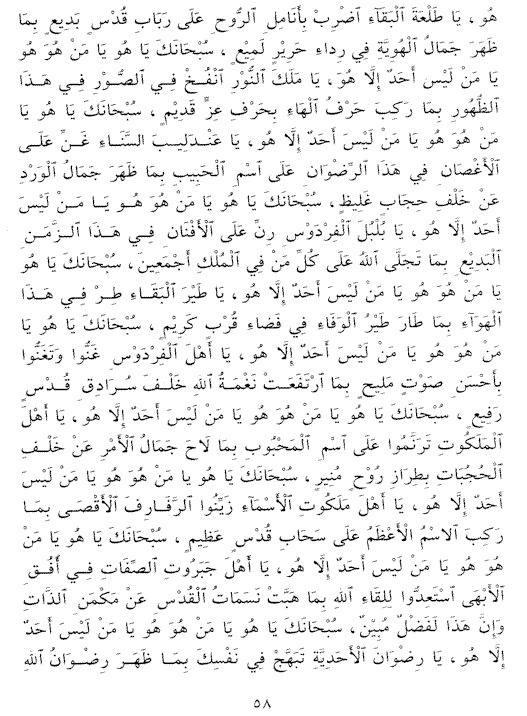 هُو ، يَا طَلْعَةَ ٱلْبَقَآءِ ٱضْرِبْ بِأَنَامِلِ ٱلرُّوحِ عَلَى رَبَابِ قُدْسٍ بَدِيعٍ بِمَا
ظَهَرَ جَمَالُ ٱلْهُوِيَّةِ فِي رِداءِ حَرِيْرٍ لَمِيعٍ ، سُبْحَانَكَ يَا هُو يَا مَنْ هُوَ هُو
يَا مَنْ لَيْس أَحَدٌ إِلَّا هُوَ، يَا مَلَكَ ٱلنُّوْرِ ٱنْفُخْ فِي ٱلصُّوْرِ فِي هَـذَا
ٱلظُّهُورِ بِمَا رَكِبَ حَرْفُ ٱلْهَاءِ بِحَرْفِ عِزٍّ قَدِيْمٍ ، سُبْحَانَكَ يَا هُو يَا
مَنْ هُوَ هُو يَا مَنْ لَيْسَ أَحَدٌ إِلَّا هُو، يَا عَنْدَلِيبَ السَّنَاءِ غَنِّ عَلَـى
ٱلْأَغْصَانِ فِي هَذَا ٱلرِّضْوَانِ عَلَى ٱسْمِ ٱلْحَبِيبِ بِمَا ظَهَرَ جَمَالُ ٱلْوَرْدِ
عَنْ خَلْفِ حِجَابٍ غَلِيظٍ، سُبْحَانَكَ يَا هُو يَا مَنْ هُوَ هُـو يَـا مَـنْ لَيْسَ
أَحَدٌ إِلَّا هُو، يَا بُلْبُلَ ٱلْفِرْدَوْسِ رِنِّ عَلَى ٱلْأَفْنَانِ فِـي هَـذَا ٱلـزَّمَـنِ
ٱلْبَدِيْعِ بِمَا تَجَلَّى ٱللهُ عَلَى كُلِّ مَنْ فِي ٱلْمُلْكِ أَجْمَعِينَ، سُبْحَانَكَ يَا هُو
يَا مَنْ هُوَ هُو يَا مَنْ لَيْسَ أَحَدٌ إِلَّا هُو، يَا طَيْرَ ٱلْبَقَـاءِ طِـرْ فِـي هَـذَا
ٱلْهَوَآءِ بِمَا طَارَ طَيْرُ ٱلْوَفَاءِ فِي فَضاءِ قُرْبٍ كَرِيْمٍ ، سُبْحَانَكَ يَا هُو يَا
مَنْ هُوَ هُو يَا مَنْ لَيْسَ أَحَدٌ إِلَّا هُو، يَا أَهْلَ ٱلْفِرْدَوْسِ غَنُّوا وَتَغَنُّوا
بِأَحْسَنِ صَوْتٍ مَلِيحٍ بِمَا ٱرْتَفَعَـتْ نَغْمَةُ ٱللهِ خَلْـفَ سُـرَادِقِ قُـدْسٍ
رَفِيعٍ ، سُبْحَانَكَ يَا هُو يَا مَنْ هُوَ هُو يَا مَنْ لَيْسَ أَحَدٌ إِلَّا هُو، يَا أَهْلَ
ٱلْمَلَكُوتِ تَرَنَّمُوا عَلَى ٱسْمِ ٱلْمَحْبُوبِ بِمَا لَاحَ جَمَالُ ٱلْأَمْرِ عَنْ خَلْـفِ
ٱلْحُجُبَاتِ بِطِرَازِ رُوْحٍ مُنِيرٍ ، سُبْحَانَكَ يَا هُو يا مَنْ هُوَ هُو يَا مَنْ لَيْسَ
أَحَدٌ إِلَّا هُو، يَا أَهْلَ مَلَكُوتِ ٱلْأَسْمَآءِ زَيِّنُوا ٱلرَّفَارِفَ ٱلْأَقْصَى بِمَـا
رَكِبَ ٱلاسْمُ ٱلْأَعْظَمُ عَلَى سَحَابِ قُدْسٍ عَظِيمٍ ، سُبْحَانَكَ يَا هُو يَا مَنْ
هُوَ هُو يَا مَنْ لَيْسَ أَحَدٌ إِلَّا هُو، يَا أَهْلَ جَبَرُوتِ ٱلصِّفَاتِ فِـي أُفُـقِ
ٱلْأَبْهَى ٱسْتَعِدُّوا لِلِقَاءِ ٱللهِ بِمَا هَبَّتْ نَسَمَاتُ ٱلْقُدْسِ عَنْ مَكْمَنِ ٱلذَّاتِ
وَإِنَّ هَذَا لَفَضْلٌ مُبِيْنٌ، سُبْحَانَكَ يَا هُو يَا مَنْ هُوَ هُو يَا مَنْ لَيْسَ أَحَدٌ
إِلَّا هُو، يَا رِضْوَانَ ٱلْأَحَدِيَّةِ تَبَهَّجْ فِي نَفْسِكَ بِمَا ظَهَـرَ رِضْـوَانُ ٱللهِ
٥٨